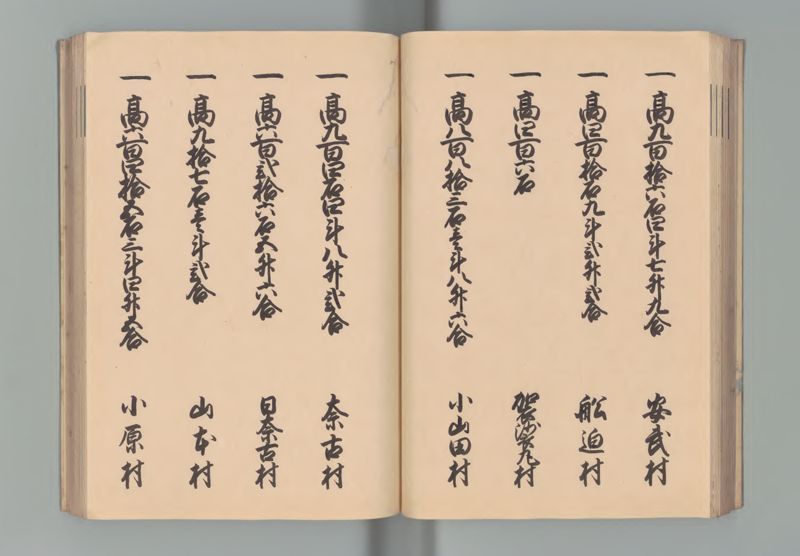 一 高九百拾六石四斗七升九合 安武村
一 高四百拾石九斗弐升弐合 船迫村
一 高四百六石
一 高八百八拾三石壱斗八升六合 小山田村
一 高九百四石四斗八升弐合 奈古村
一 高六百弐拾六石五升六合 日奈古村
一 高九拾七石壱斗弐合 山本村
一 高六百四拾五石三斗四升五合 小原村